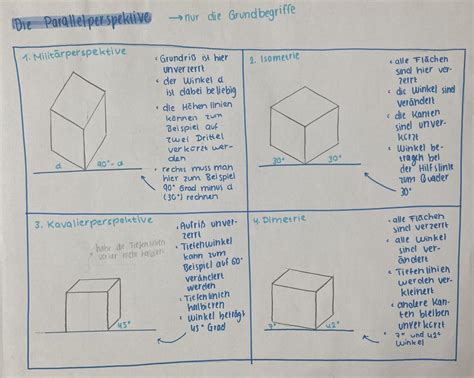 Die Parallelperspektive → nur die Grundbegriffe
1. Militärperspektive
• Grundriß ist hier
unverzerrt
• der Winkel α
ist dabei beliebig
• die Höhenlinien
können zum
Beispiel auf
zwei Drittel
verkürzt wer-
den
• rechts muss man
hier zum Beispiel
90° Grad minus α
(30°) rechnen
α
90°-α
2. Isometrie
• alle Flächen
sind hier ver-
zerrt
• die Winkel sind
verändert
• die Kanten
sind unver-
kürzt
• Winkel be-
tragen bei
der Hilfslinie
zum Quader
30°
30°
30°
3. Kavalierperspektive
habe die Tiefenlinien
vorher nicht halbiert
• Aufriß unver-
zerrt
• Tiefenwinkel
kann zum
Beispiel auf 60°
verändert
werden
• Tiefenlinien
halbieren
• Winkel beträgt
45° Grad
45°
4. Dimetrie
• alle Flächen
sind verzerrt
• alle Winkel
sind ver-
ändert
• Tiefenlinien
werden ver-
kleinert
• andere Kan-
ten bleiben
unverkürzt
• 7° und 42°
Winkel
7°
42°